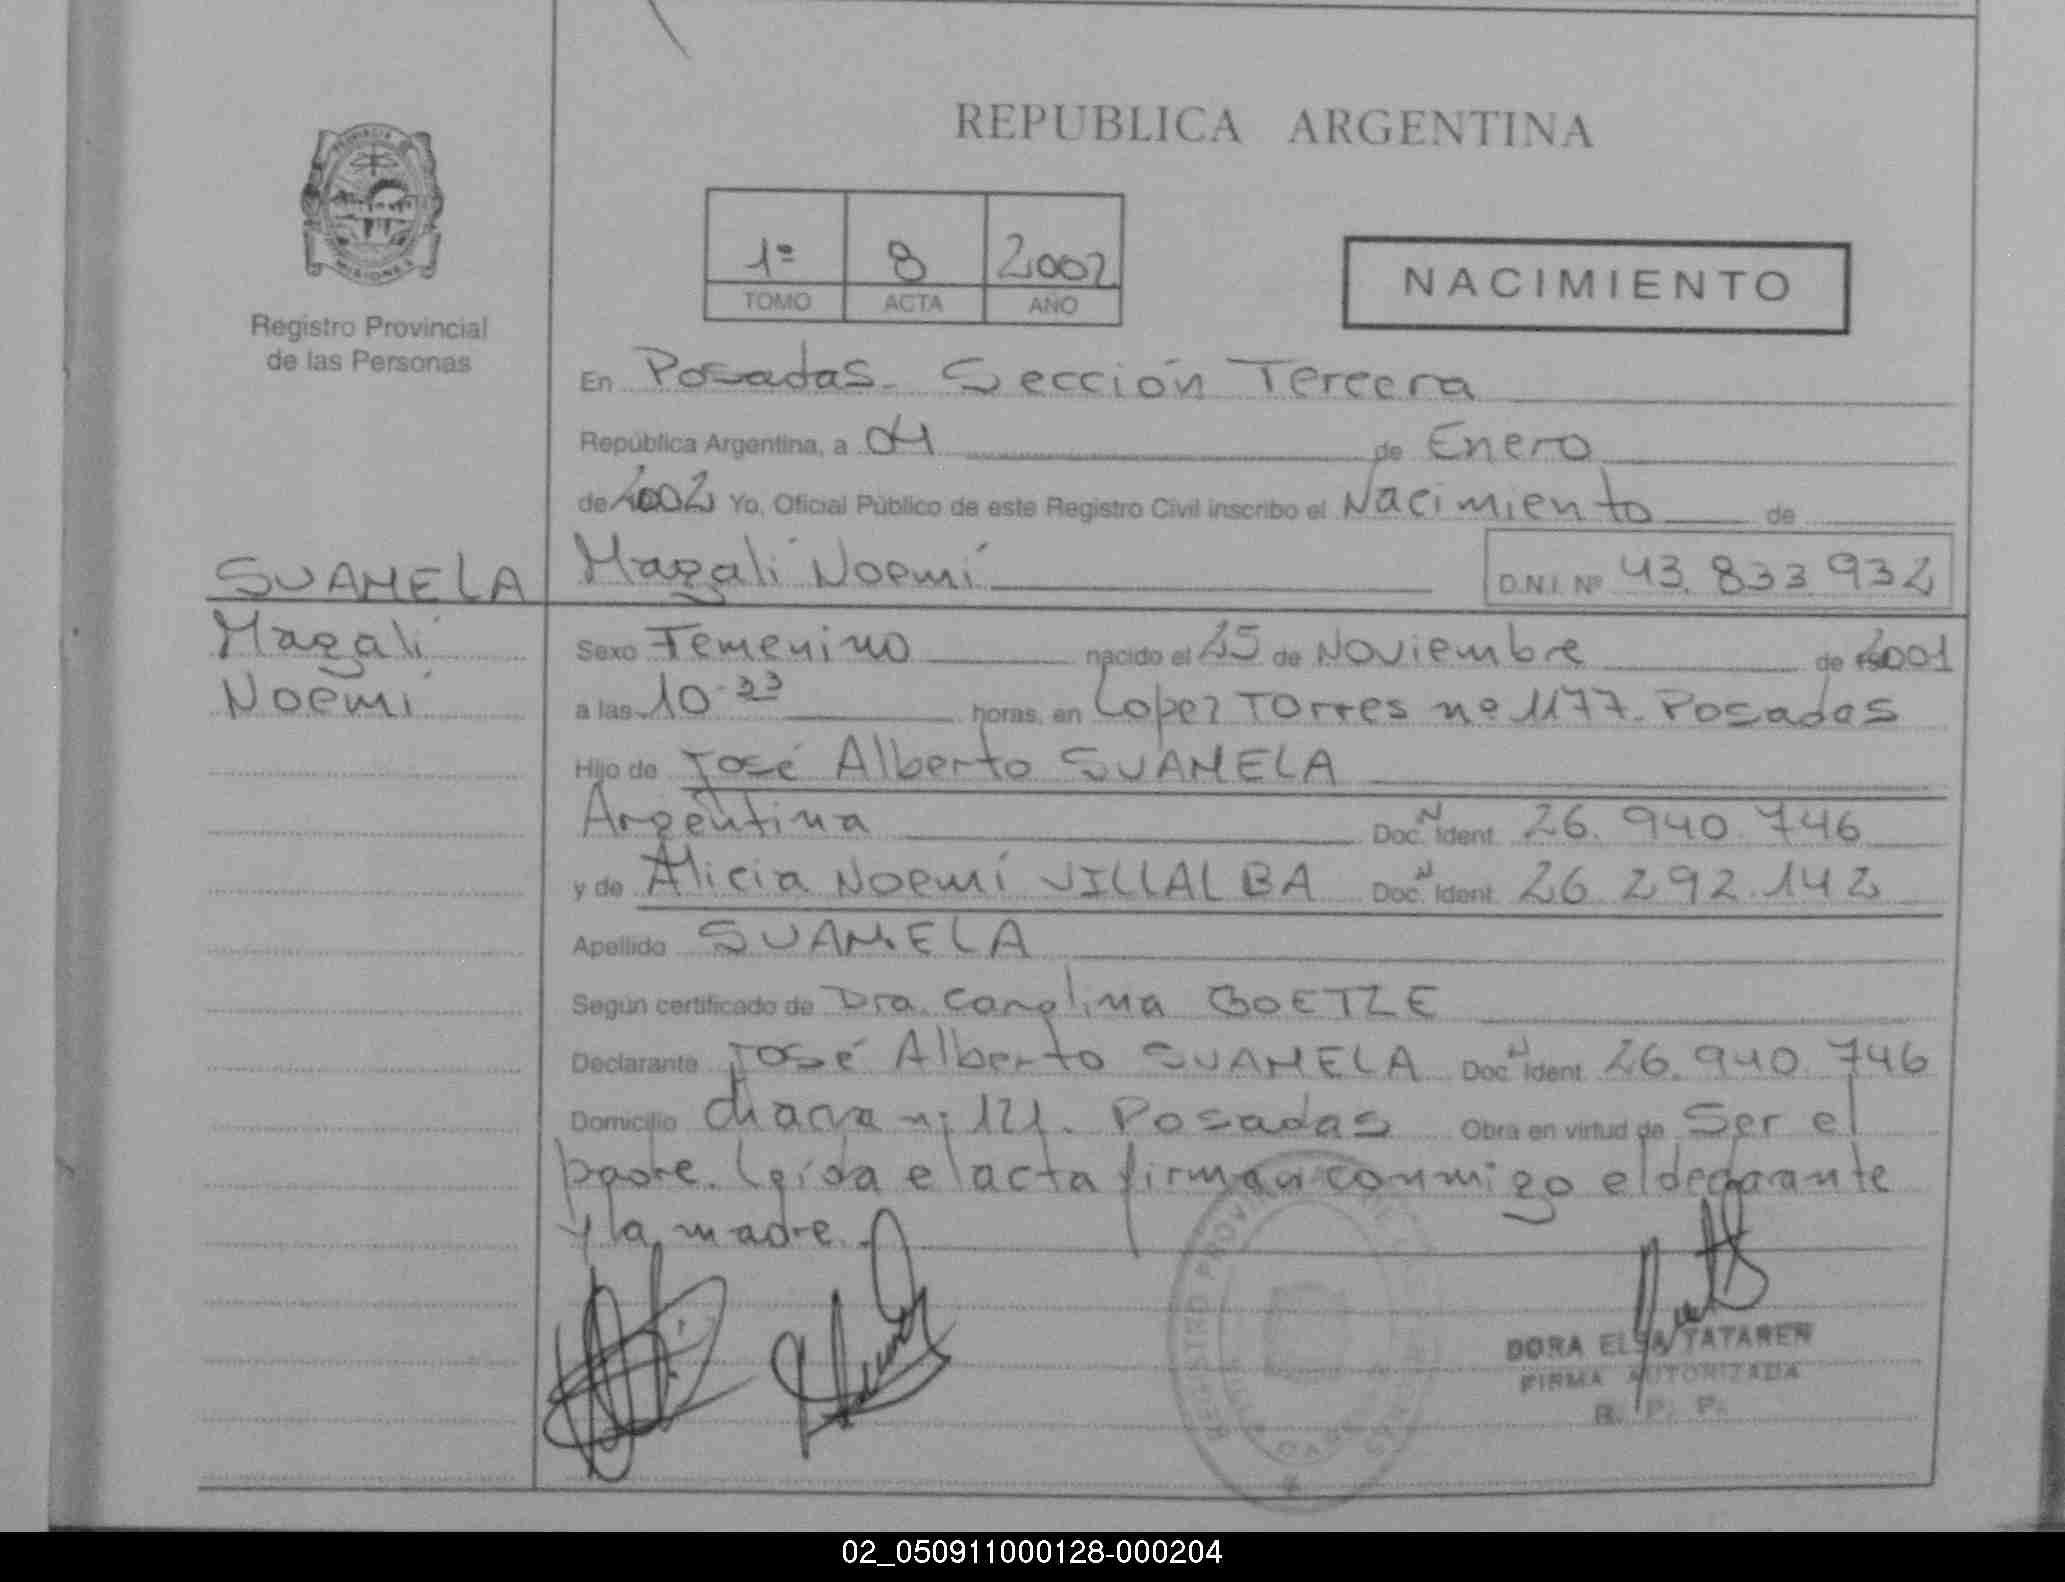 REPUBLICA ARGENTINA
1º 8 2002
TOMO ACTA AÑO
NACIMIENTO
PROVINCIA
MISIONES
Registro Provincial
de las Personas
SUAMELA
Magalí
Noemí
En Posadas. Sección Tercera
República Argentina, a 04 de Enero
de 2002 Yo, Oficial Público de este Registro Civil inscribo el Nacimiento de
Magalí Noemí D.N.I. Nº 43.833.932
Sexo Femenino nacido el 25 de Noviembre de 2001
a las 10-33 horas, en Lopez Torres nº 1177. Posadas
Hijo de José Alberto SUAMELA
Argentina Doc. N Ident. 26.940.746
y de Alicia Noemí VILLALBA Doc. N Ident. 26.292.142
Apellido SUAMELA
Según certificado de Dra. Carolina GOETZE
Declarante José Alberto SUAMELA Doc. N Ident. 26.940.746
Domicilio chacra nº 121. Posadas Obra en virtud de Ser el
padre. Leída el acta firman conmigo el declarante
y la madre.
REGISTRO PROVINCIAL
DORA ELSA TATAREN
FIRMA AUTORIZADA
R. P. P.
02_050911000128-000204